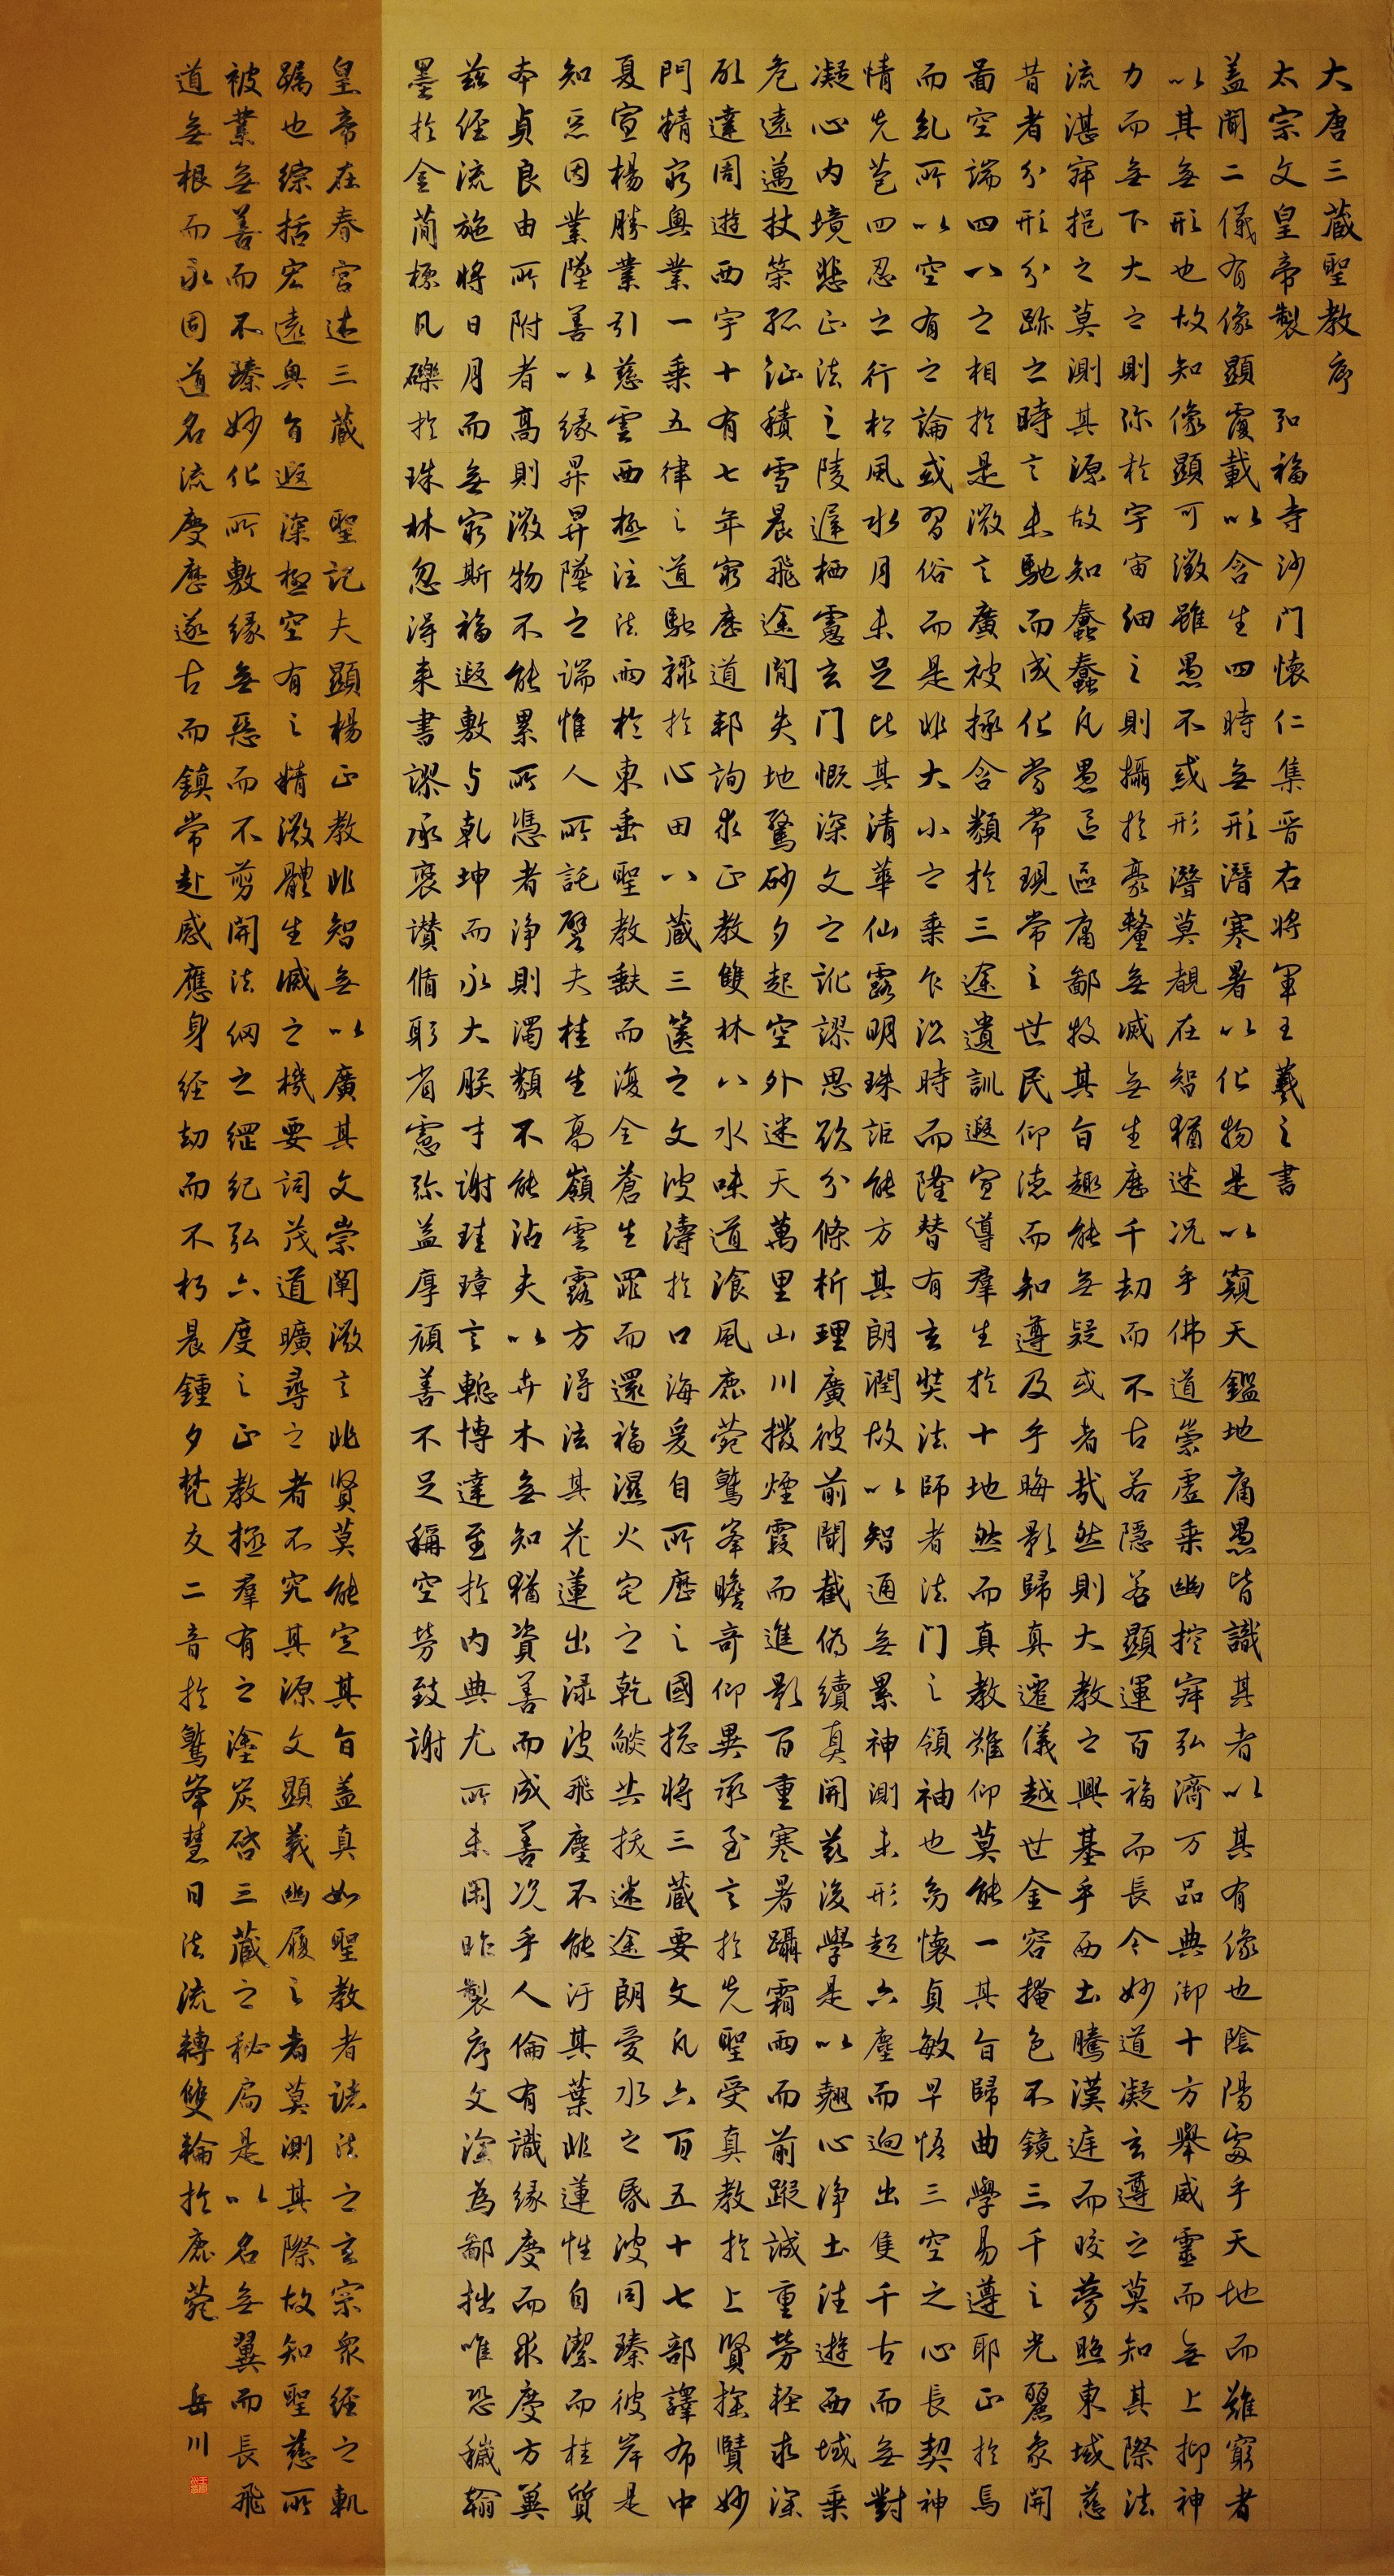 大唐三藏聖教序
太宗文皇帝製 弘福寺沙門懷仁集晉右將軍王羲之書
盖聞二儀有像顯覆載以含生四時無形潛寒暑以化物是以窺天鑑地庸愚皆識其者以其有像也陰陽處乎天地而難窮者
以其無形也故知像顯可徵雖愚不惑形潛莫覩在智猶迷況乎佛道崇虛乘幽控寂弘濟万品典御十方舉威靈而無上抑神
力而無下大之則弥於宇宙細之則攝於豪釐無滅無生歷千劫而不古若隱若顯運百福而長今妙道凝玄遵之莫知其際法
流湛寂挹之莫測其源故知蠢蠢凡愚區區庸鄙投其旨趣能無疑或者哉然則大教之興基乎西土騰漢庭而皎夢照東域慈
昔者分形分跡之時言未馳而成化當常現常之世民仰德而知遵及乎晦影歸真遷儀越世金容掩色不鏡三千之光麗象開
圖空端四八之相於是微言廣被拯含類於三途遺訓遐宣導群生於十地然而真教難仰莫能一其旨歸曲學易遵耶正於焉
而糺所以空有之論或習俗而是非大小之乘乍沿時而隆替有玄奘法師者法門之領袖也幼懷貞敏早悟三空之心長契神
情先苞四忍之行松風水月未足比其清華仙露明珠詎能方其朗潤故以智通無累神測未形超六塵而迥出隻千古而無對
凝心內境悲正法之陵遲栖慮玄門慨深文之訛謬思欲分條析理廣彼前聞截偽續真開茲後學是以翹心淨土往遊西域乘
危遠邁杖策孤征積雪晨飛途閒失地驚砂夕起空外迷天萬里山川撥煙霞而進影百重寒暑躡霜雨而前蹤誠重勞輕求深
願達周遊西宇十有七年窮歷道邦詢求正教雙林八水味道飡風鹿菀鷲峯瞻奇仰異承至言於先聖受真教於上賢探賾妙
門精窮奧業一乘五律之道馳驟於心田八藏三篋之文波濤於口海爰自所歷之國揔將三藏要文凡六百五十七部譯布中
夏宣楊勝業引慈雲西極注法雨於東垂聖教缺而復全蒼生罪而還福濕火宅之乾燄共拔迷途朗愛水之昏波同臻彼岸是
知惡因業墜善以緣昇昇墜之端惟人所託譬夫桂生高嶺雲露方得泫其花蓮出淥波飛塵不能汙其葉非蓮性自潔而桂質
本貞良由所附者高則微物不能累所憑者淨則濁類不能沾夫以卉木無知猶資善而成善況乎人倫有識緣慶而求慶方冀
茲經流施將日月而無窮斯福遐敷与乾坤而永大朕才謝珪璋言慙博達至於內典尤所未閑昨製序文深為鄙拙唯恐穢翰
墨於金簡標瓦礫於珠林忽得来書謬承褒讚循躬省慮弥益厚顏善不足稱空勞致謝
皇帝在春宮述三藏 聖記夫顯楊正教非智無以廣其文崇闡微言非賢莫能定其旨盖真如聖教者諸法之玄宗眾經之軌
躅也綜括宏遠奧旨遐深極空有之精微體生滅之機要詞茂道曠尋之者不究其源文顯義幽履之者莫測其際故知聖慈所
被業無善而不臻妙化所敷緣無惡而不剪開法網之綱紀弘六度之正教拯群有之塗炭啓三藏之秘扃是以名無翼而長飛
道無根而永固道名流慶歷遂古而鎮常赴感應身經劫而不朽晨鍾夕梵交二音於鷲峯慧日法流轉雙輪於鹿菀 岳川